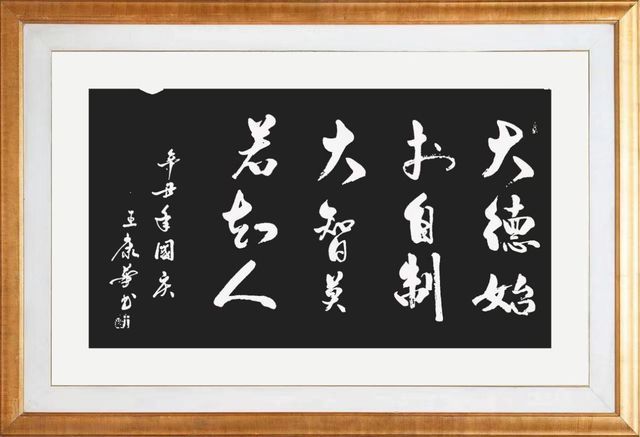 大德始
於自制
大智莫
若知人
辛丑年國庆
王康书